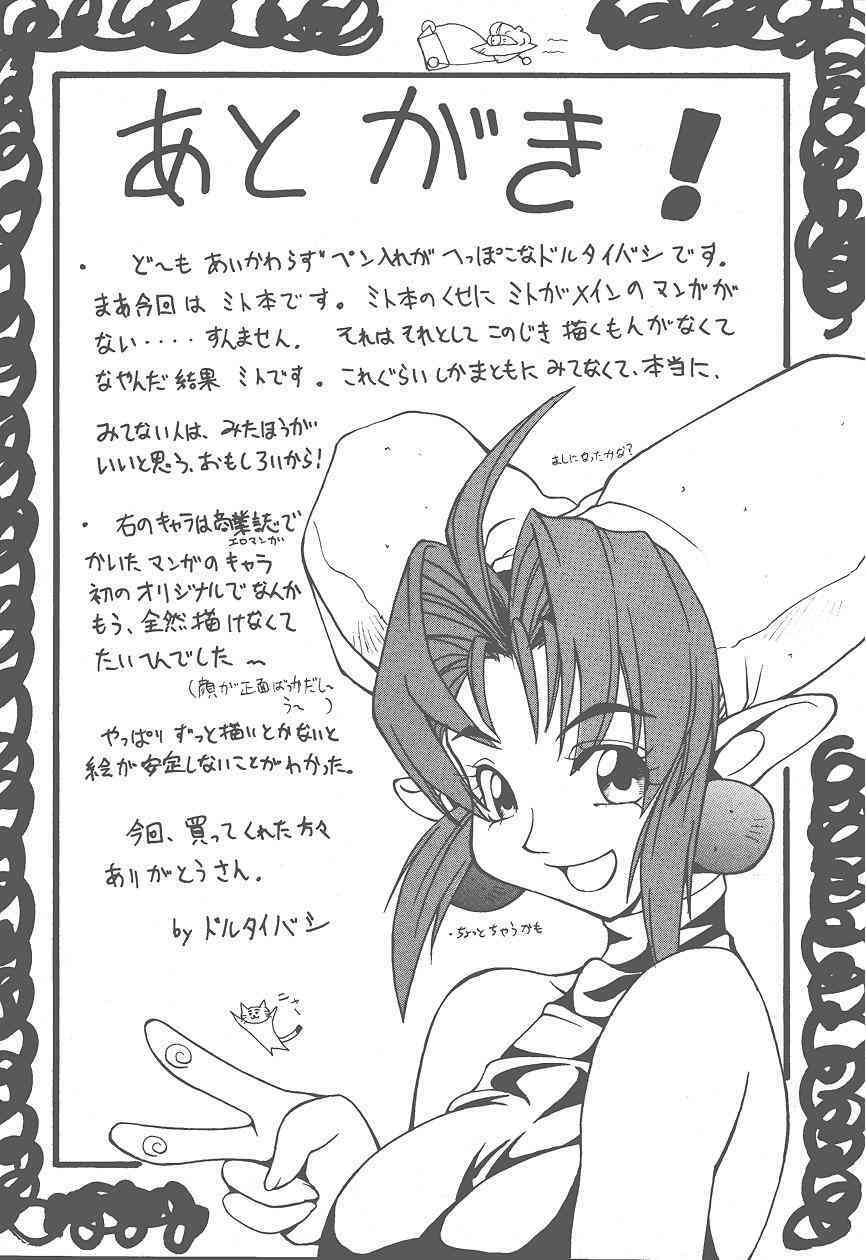 あとがき!
・ ど〜も あいかわらず ペン入れが へっぽこな ドルタイバシ です。
まあ今回は ミト本です。ミト本のくせに ミトがメインの マンガが
ない・・・・すんません。 それはそれとして このじき 描くもんがなくて
なやんだ結果 ミトです。これぐらいしかまともに みてなくて、本当に、
みてない人は、みたほうが
いいと思う、おもしろいから!
ましになったかな?
・ 右のキャラは商業誌で
エロマンガ
かいた マンガのキャラ
初のオリジナルでなんか
もう、全然描けなくて
たいへんでした 〜
(顔が正面ばっかだし〜
う〜 )
やっぱり ずっと描いとかないと
絵が安定しないことがわかった。
今回、買ってくれた方々
ありがとうさん。
by ドルタイバシ
・ちょっとちゃうかも
ニャー